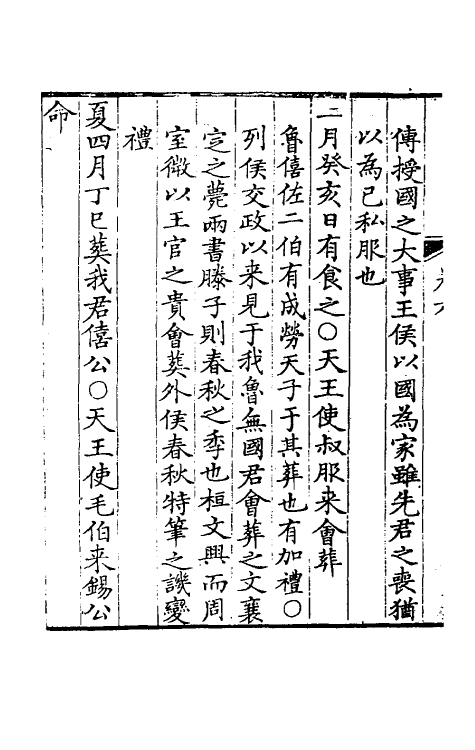 傳授國之大事王侯以國為家雖先君之喪猶
以為已私服也
二月癸亥日有食之○天王使叔服来會葬
魯僖佐二伯有成勞天子于其葬也有加禮○
列侯交政以来見于我魯無國君會葬之文襄
定之薨兩書滕子則春秋之季也桓文興而周
室微以王官之貴會葬外侯春秋特筆之譏變
禮
夏四月丁巳葬我君僖公○天王使毛伯来錫公
命